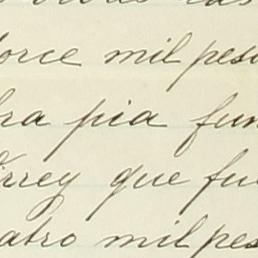 orce mil pes
ra pia fun
irrey que fu
atro mil pes